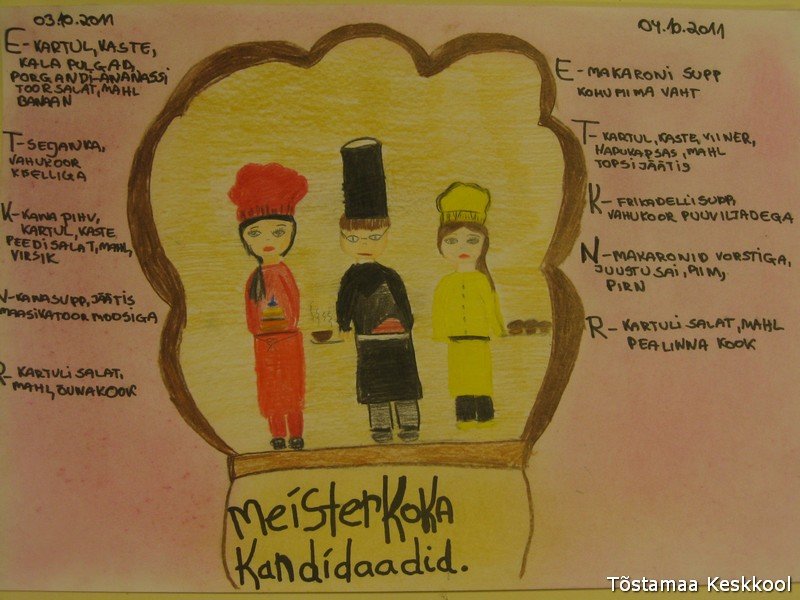 03.10.2011
E-KARTUL, KASTE,
KALA PULGAD,
PORGANDI-ANANASSI
TOORSALAT, MAHL
BANAAN
T-SEGANKA,
VAHUKOOR
KEELLIGA
K-KANA PIHV,
KARTUL, KASTE
PEEDISALAT, MAHL,
VIRSIK
N-KANASUPP, JÄÄTIS
MAASIKATOORMOOSIGA
R-KARTULI SALAT,
MAHL, ÕUNAKOOK
04.10.2011
E-MAKARONI SUPP
KOHUPIIMA VAHT
T-KARTUL, KASTE, VIINER,
HAPUKAPSAS, MAHL
TOPSIJÄÄTIS
K-FRIKADELLISUPP,
VAHUKOOR PUUVILJADEGA
N-MAKARONID VORSTIGA,
JUUSTUSAI, PIIM,
PIRN
R-KARTULI SALAT, MAHL
PEALINNA KOOK
MeisterKOKA
Kandidaadid.
Tõstamaa Keskkool